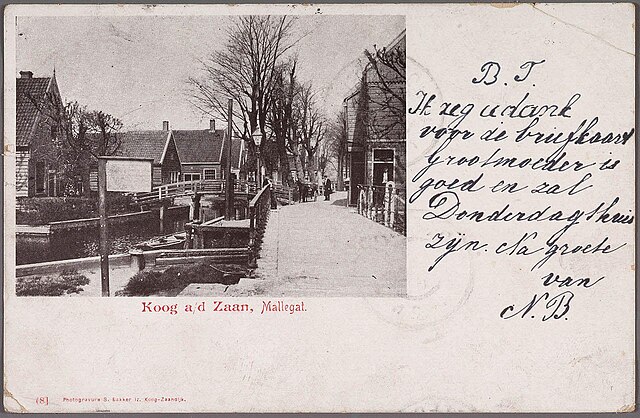 B. T.
Ik zeg u dank
voor de briefkaart
Grootmoeder is
goed en zal
Donderdag thuis
zijn. Na groete
van
N. B.
Koog a/d Zaan, Mallegat.
(8) Photogravure S. Bakker Jz. Koog-Zaandijk.